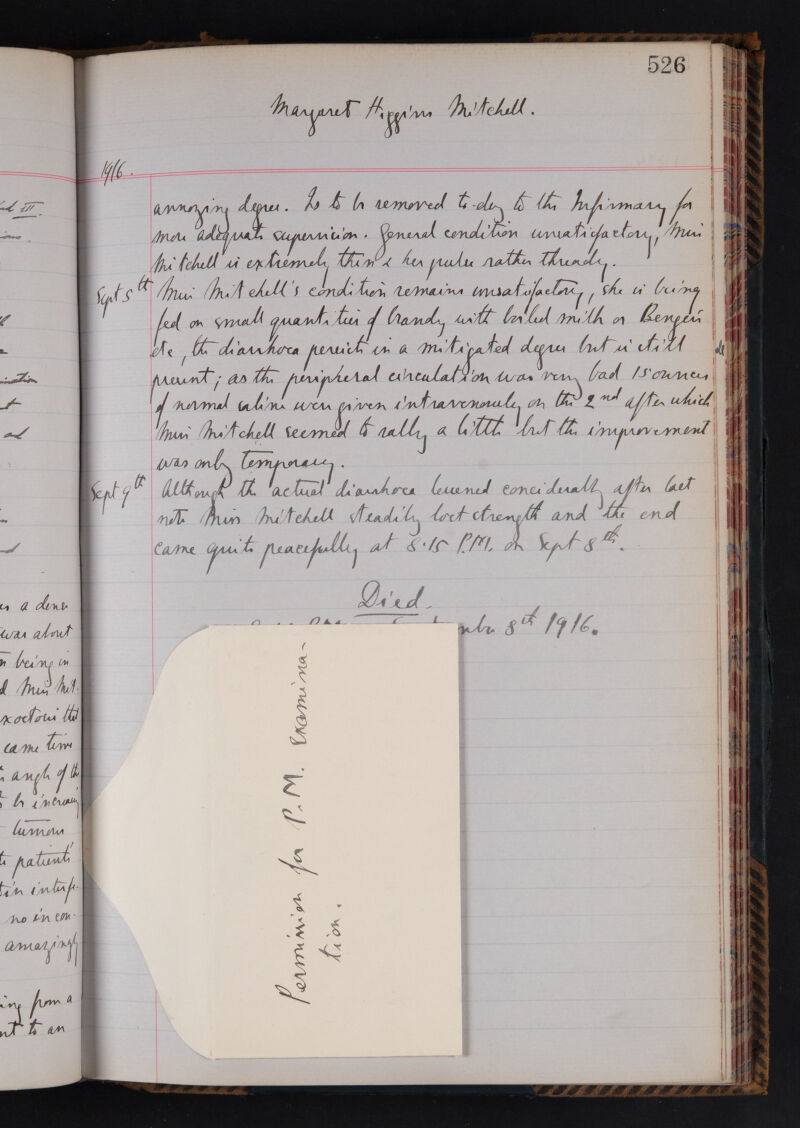 526
Margaret Higgins Mitchell.
1916.
annoying degree. Is to be removed to-day to the Infirmary for
more adequate supervision. General condition unsatisfactory, Miss
Mitchell is extremely thin & her pulse rather thready.
Sept 5th Miss Mitchell's condition remains unsatisfactory, she is being
fed on small quantities of brandy with boiled milk or Benger's
etc, the diarrhoea persists in a mitigated degree but is still
present; as the peripheral circulation was very bad 15 ounces
of normal saline were given intravenously on the 2nd after which
Miss Mitchell seemed to rally a little but the improvement
was only temporary.
Sept 9th Although the actual diarrhoea lessened considerably after last
note Miss Mitchell steadily lost strength and the end
came quite peacefully at 8.15 P.M. on Sept 8th.
Died.
8th 1916.
Permission for P.M. Examina-
tion.
was a dense
was about
being in
Miss Mit-
same time
angle of the
be increasing
tumour
patient's
no incon-
amazingly
from a
to an